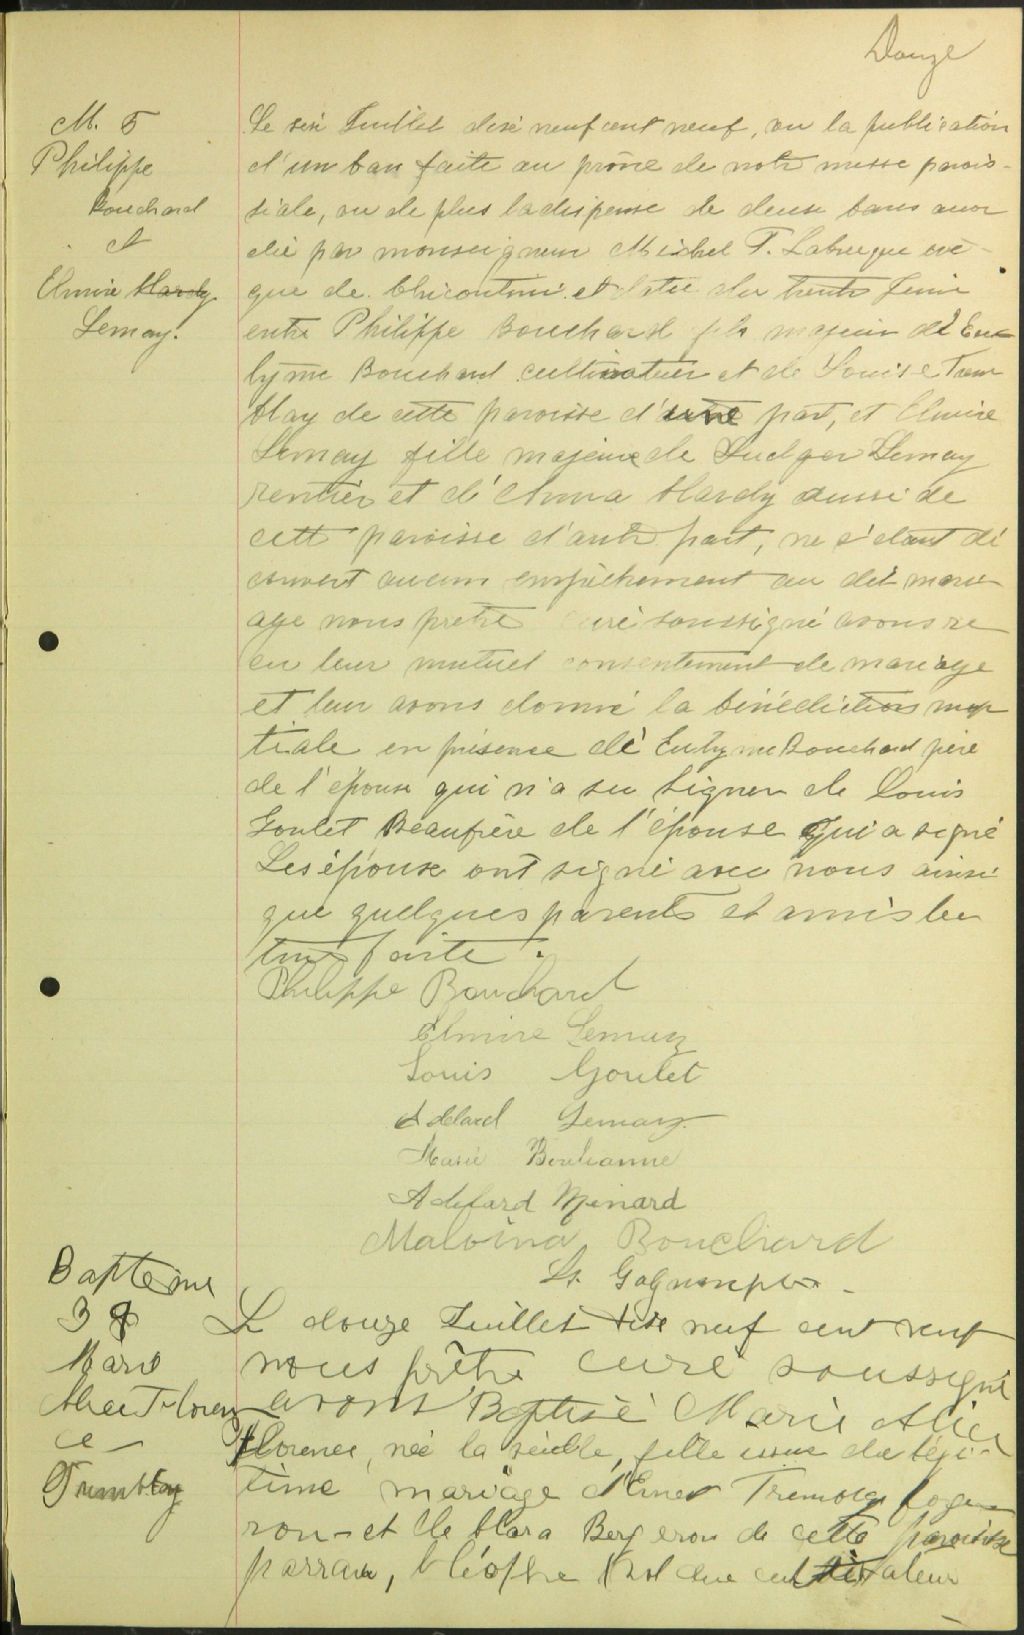 Douze
M. 5
Philippe
Bouchard
et
Elmire Hardy
Lemay.
Le six Juillet dixe neuf cent neuf, vu la publication
d'un ban faite au prône de notre messe parois-
siale, vu de plus la dispense de deux bans accor
dée par monseigneur Michel T. Labrecque evê-
que de Chicoutimi et datée du trente Juin
entre Philippe Bouchard fils majeur de Eu
tyme Bouchard cultivateur et de Louise Trem
blay de cette paroisse d'une part, et Elmire
Lemay fille majeure de Ludger Lemay
rentier et de Anna Hardy aussi de
cette paroisse d'autre part, ne s'étant dé
couvert aucun empêchement au dit mari
age nous prêtre curé soussigné avons re
çu leur mutuel consentement de mariage
et leur avons donné la bénédiction nup
tiale en présence de Eutyme Bouchard père
de l'époux qui n'a su signer de Louis
Goulet Beaufrère de l'épouse qui a signé
Les époux ont signé avec nous ainsi
que quelques parents et amis lec
ture faite.
Philippe Bouchard
Elmire Lemay
Louis Goulet
Adélard Lemay
Marie
Adélard Ménard
Malvina Bouchard
Ls. Gagnon ptre
Baptême
38
Marie
Alice Floren
ce
Tremblay
Le douze Juillet dixe neuf cent neuf
nous prêtre curé soussigné
avons Baptisé Marie Alice
Florence, née la veille, fille issue de légi-
time mariage d'Emer Tremblay forge
ron et de Clara Bergeron de cette paroisse
parrain, Cléophe cultivateur